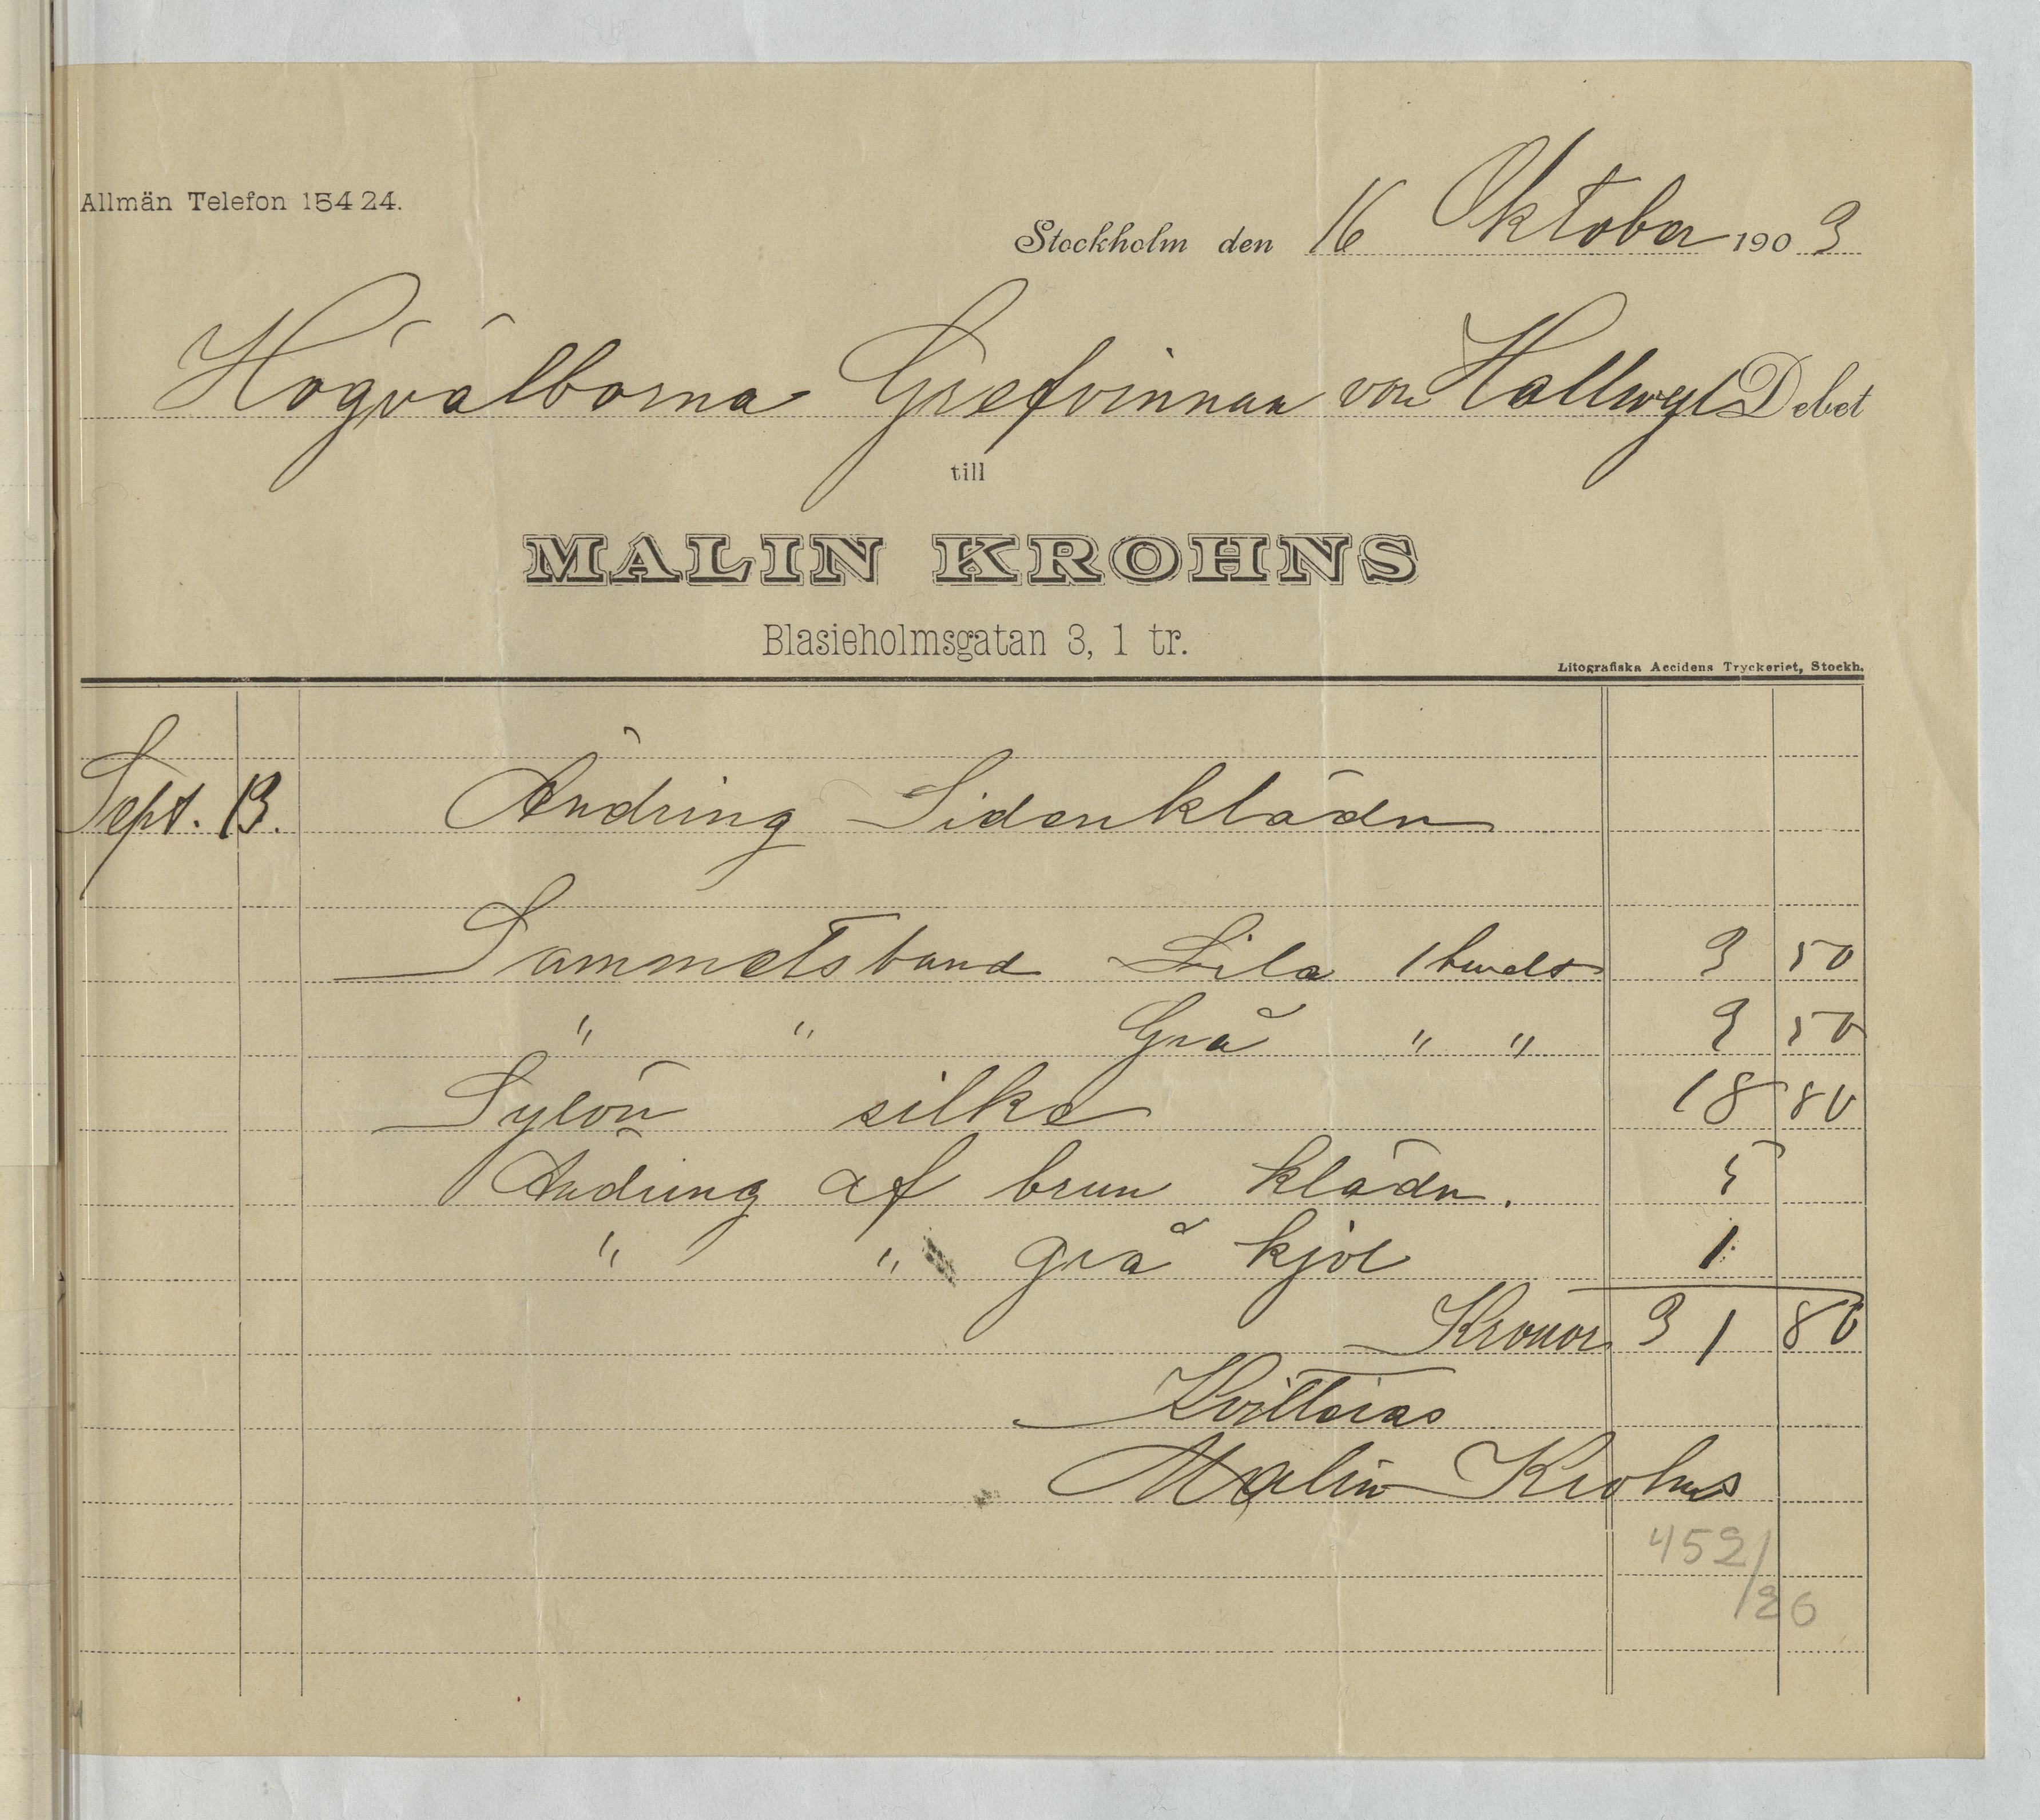 Allmän Telefon 15424.
Stockholm den 16 Oktober 1903
Högvälborna Grefvinnan von Hallwyl Debet
till
MALIN KROHNS
Blasieholmsgatan 3, 1 tr.
Litografiska Accidens Tryckeriet, Stockh.
Sept. 13. Ändring Sidenklädn
Sammetsband Lila 1 3 50
" " Grå " " 3 50
Sylön silke 18 80
Ändring af brun klädn. 5
" " grå kjol 1
Kronor 31 80
Kvitteras
Malin Krohns
452/26